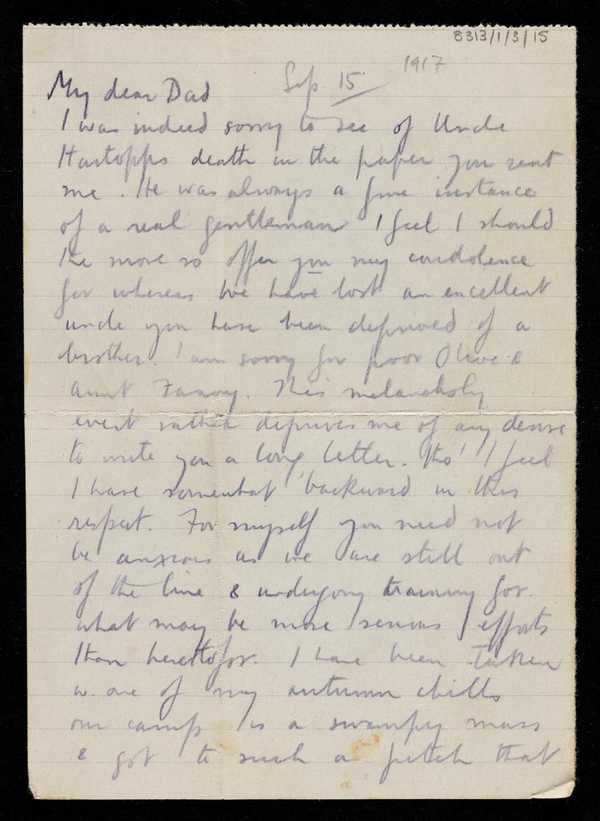 8313/1/3/15
1917
Sep 15
My dear Dad
I was indeed sorry to see of Uncle
Hartopps death in the paper you sent
me. He was always a fine instance
of a real gentleman I feel I should
the more so offer you my condolence
for whereas we have lost an excellent
uncle you have been deprived of a
brother. I am sorry for poor Olive &
Aunt Fanny. This melancholy
event rather deprives me of any desire
to write you a long letter. tho' I feel
I have somewhat backward in this
respect. For myself you need not
be anxious as we are still out
of the line & undergoing training for
what may be more serious efforts
than heretofor. I have been taken
w. one of my autumn chills
our camp is a swampy mass
& got to such a pitch that